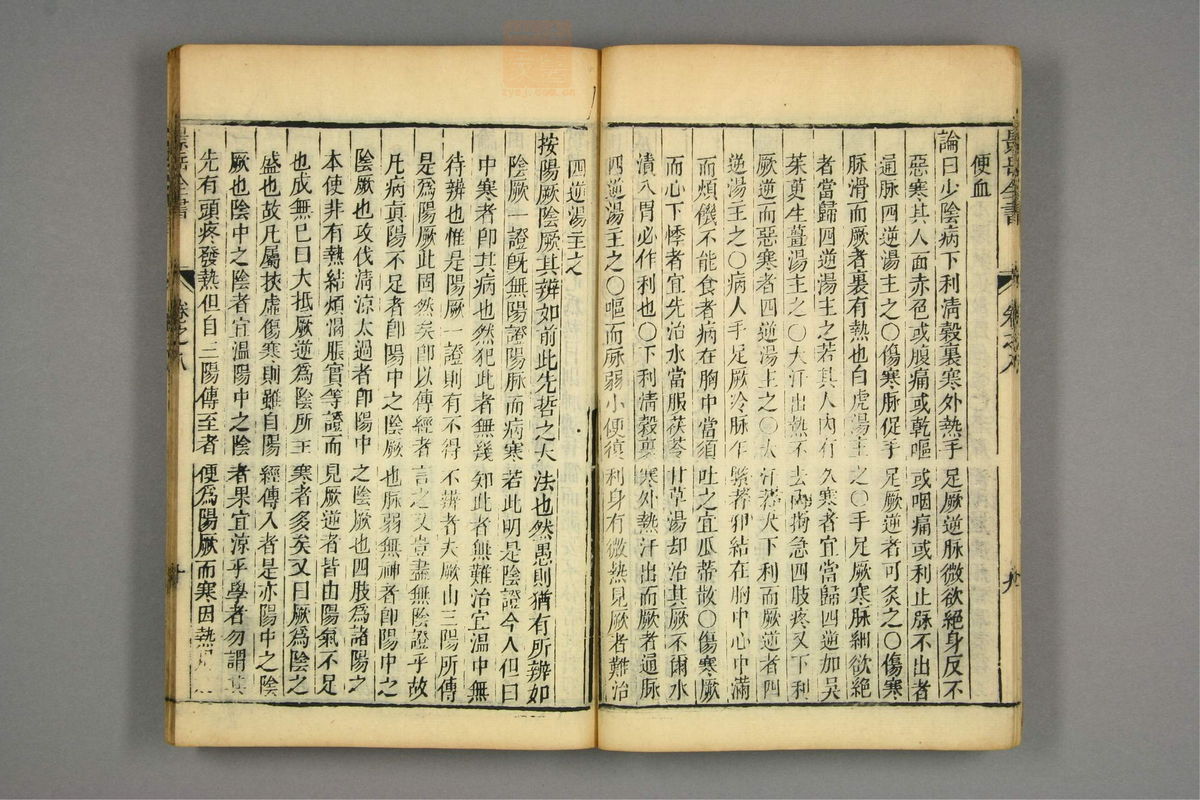 景岳全書 卷之八 九
便血
論曰少陰病下利淸穀裏寒外熱手足厥逆脉微欲絶身反不
惡寒其人面赤色或腹痛或乾嘔或咽痛或利止脉不出者
通脉四逆湯主之〇傷寒脉促手足厥逆者可灸之〇傷寒
脉滑而厥者裏有熱也白虎湯主之〇手足厥寒脉細欲絶
者當歸四逆湯主之若其人內有久寒者宜當歸四逆加吳
茱萸生薑湯主之〇大汗出熱不去內拘急四肢疼又下利
厥逆而惡寒者四逆湯主之〇大汗若大下利而厥逆者四
逆湯主之〇病人手足厥冷脉乍緊者邪結在胸中心中滿
而煩饑不能食者病在胸中當須吐之宜瓜蒂散〇傷寒厥
而心下悸者宜先治水當服茯苓甘草湯却治其厥不爾水
漬入胃必作利也〇下利淸穀裏寒外熱汗出而厥者通脉
四逆湯主之〇嘔而脉弱小便復利身有微熱見厥者難治
四逆湯主之
按陽厥陰厥其辨如前此先哲之大法也然愚則猶有所辨如
陰厥一證旣無陽證陽脉而病寒若此明是陰證今人但曰
中寒者卽其病也然犯此者無幾知此者無難治宜温中無
待辨也惟是陽厥一證則有不得不辨者夫厥由三陽所傳
是爲陽厥此固然矣卽以傳經者言之又豈盡無陰證乎故
凡病眞陽不足者卽陽中之陰厥也脉弱無神者卽陽中之
陰厥也攻伐淸涼太過者卽陽中之陰厥也四肢爲諸陽之
本使非有熱結煩渴脹實等證而見厥逆者皆由陽氣不足
也成無已曰大抵厥逆爲陰所主寒者多矣又曰厥爲陰之
盛也故凡屬挾虛傷寒則雖自陽經傳入者是亦陽中之陰
厥也陰中之陰者宜温陽中之陰者果宜涼乎學者勿謂其
先有頭疼發熱但自三陽傳至者便爲陽厥而寒因熱
景岳全書 卷之八 十